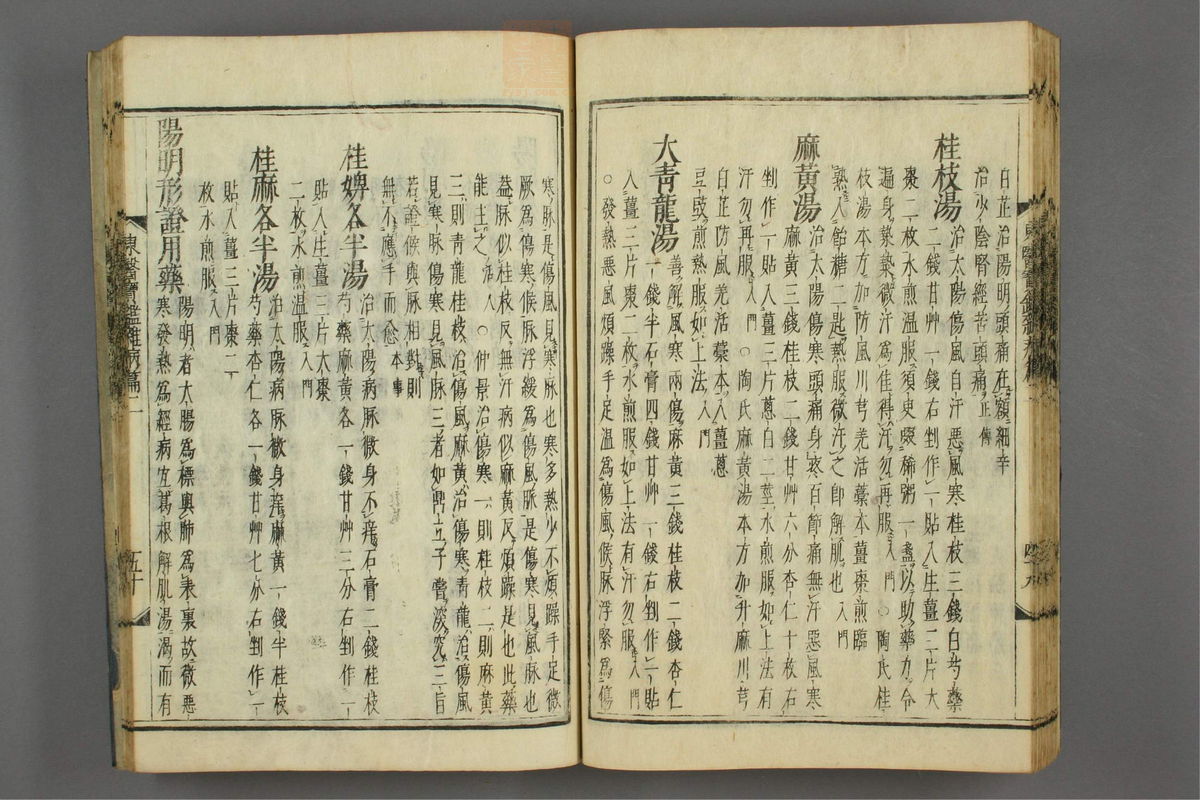 白芷治陽明頭痛在額細辛
治少陰腎經苦頭痛正傳
桂枝湯 治太陽傷風自汗惡風寒桂枝三錢白芍藥
二錢甘艸一錢右剉作一貼入生薑三片大
棗二枚水煎温服須臾啜稀粥一盞以助藥力令
遍身漐漐微汗爲佳得汗勿再服入門 ○陶氏桂
枝湯本方加防風川芎羌活藁本薑棗煎臨
熟入飴糖二匙熱服微汗之卽解肌也入門
麻黃湯 治太陽傷寒頭痛身疼百節痛無汗惡風寒
麻黃三錢桂枝二錢甘艸六分杏仁十枚右
剉作一貼入薑三片蔥白二莖水煎服如上法有
汗勿再服入門 ○陶氏麻黃湯本方加升麻川芎
白芷防風羌活藁本入薑蔥
豆豉煎熟服如上法入門
大靑龍湯 善解風寒兩傷麻黃三錢桂枝二錢杏仁
一錢半石膏四錢甘艸一錢右剉作一貼
入薑三片棗二枚水煎服如上法有汗勿服入門
○發熱惡風煩躁手足温爲傷風候脉浮緊爲傷
四十九
寒脉是傷風見寒脉也寒多熱少不煩躁手足微
厥爲傷寒候脉浮緩爲傷風脉是傷寒見風脉也
盖脉似桂枝反無汗病似麻黃反煩躁是也此藥
能主之活人 ○仲景治傷寒一則桂枝二則麻黃
三則靑龍桂枝治傷風麻黃治傷寒靑龍治傷風
見寒脉傷寒見風脉三者如鼎立予嘗深究三旨
若證候與脉相對則
無不應手而愈本事
桂婢各半湯 治太陽病脉微身不痒石膏二錢桂枝
芍藥麻黃各一錢甘艸三分右剉作一
貼入生薑三片大棗
二枚水煎温服入門
桂麻各半湯 治太陽病脉微身痒麻黃一錢半桂枝
芍藥杏仁各一錢甘艸七分右剉作一
貼入薑三片棗二
枚水煎服入門
陽明形證用藥 陽明者太腸爲標與肺爲表裏故微惡
寒發熱爲經病宜葛根解肌湯渴而有
東醫寶鑑雜病篇二
五十